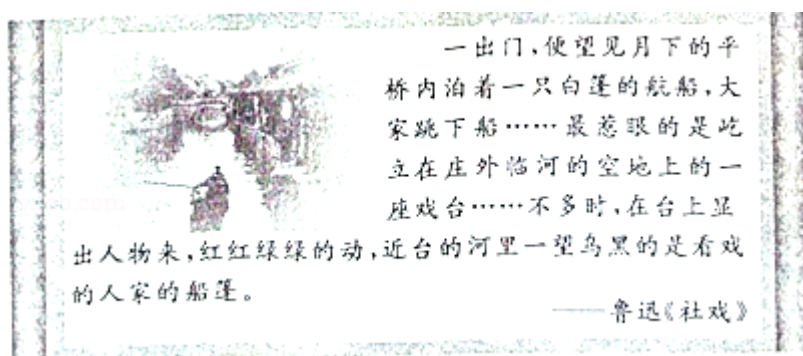 一出门,便望见月下的平
桥内泊着一只白篷的航船,大
家跳下船……最惹眼的是屹
立在庄外临河的空地上的一
座戏台……不多时,在台上显
出人物来,红红绿绿的动,近台的河里一望乌黑的是看戏
的人家的船篷。
——鲁迅《社戏》